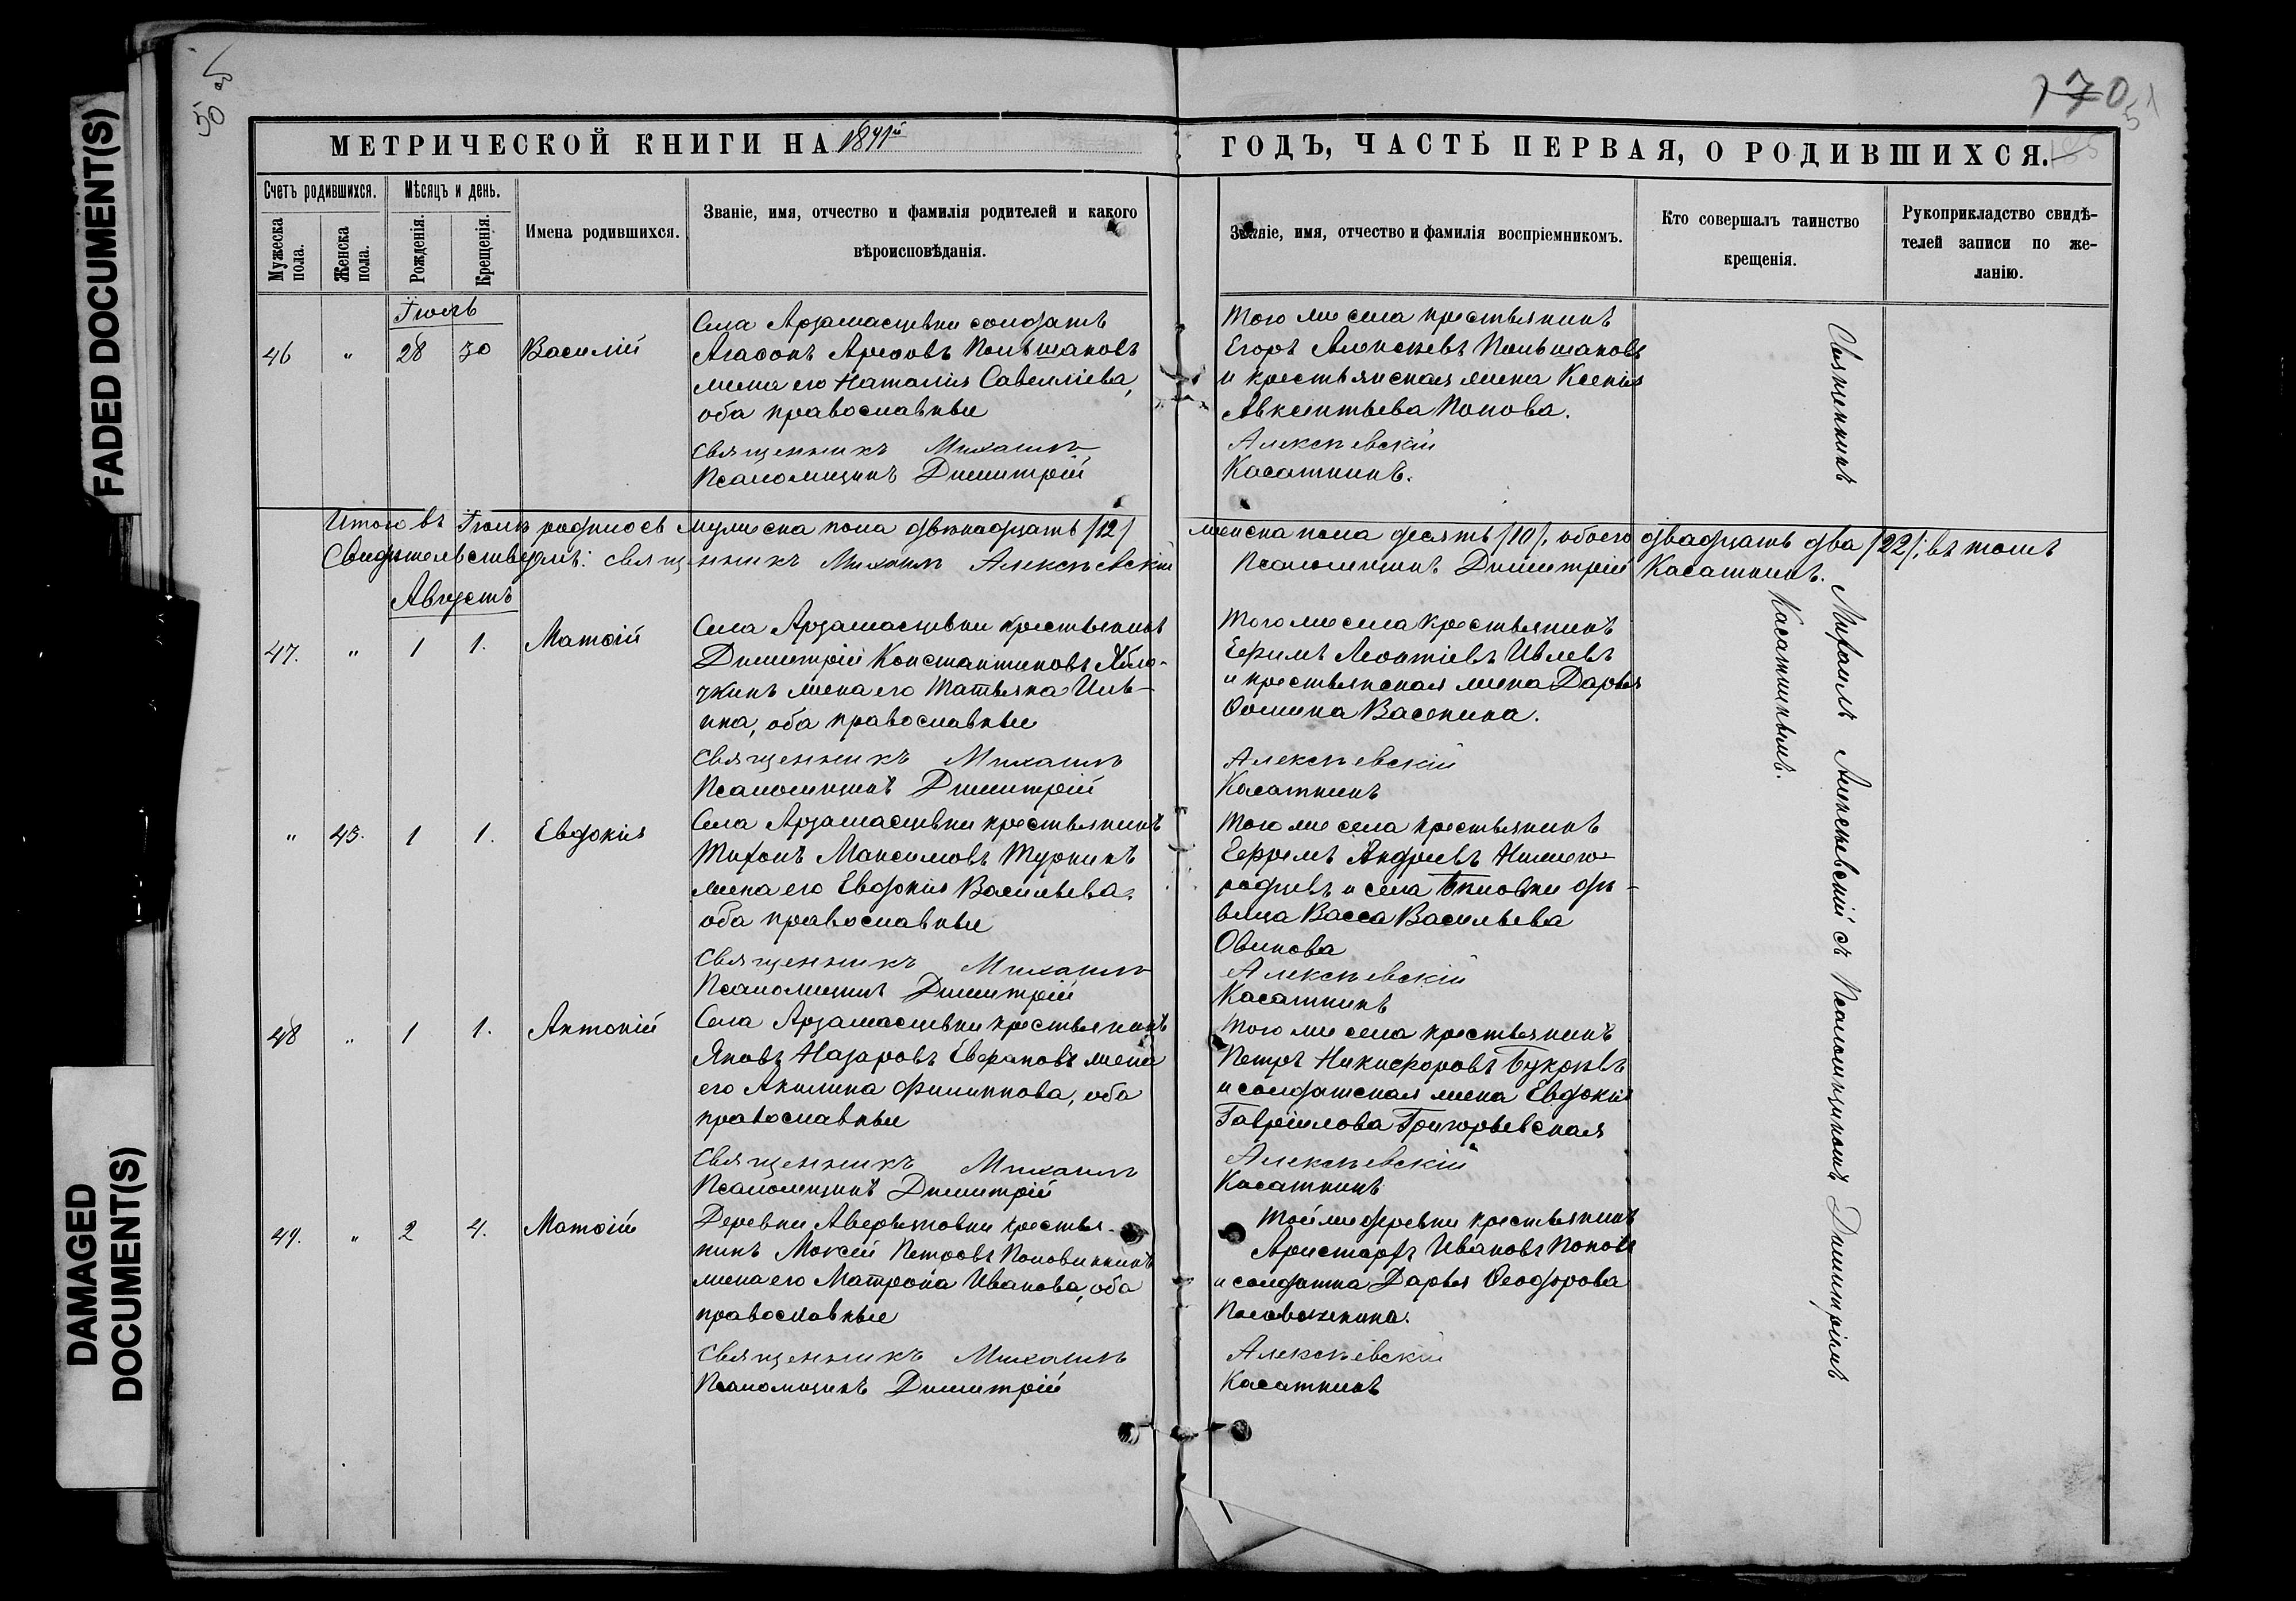 FADED DOCUMENT(S)
DAMAGED
DOCUMENT(S)
50 об
170
51
МЕТРИЧЕСКОЙ КНИГИ НА 1891й
ГОДЪ, ЧАСТЬ ПЕРВАЯ, О РОДИВШИХСЯ.
Счетъ родившихся.
Мужеска пола.
Женска пола.
Мѣсяцъ и день.
Рожденія.
Крещенія.
Имена родившихся.
Званіе, имя, отчество и фамилія родителей и какого
вѣроисповѣданія.
Званіе, имя, отчество и фамилія воспріемникомъ.
Кто совершалъ таинство
крещенія.
Рукоприкладство свидѣ-
телей записи по же-
ланію.
Іюль
46 " 28 30 Василій
Села Арзамасцевки солдатъ
Агаѳонъ Арефовъ Польшаковъ
жена его Наталія Савелліева,
оба православные
Священникъ Михаилъ
Псаломщикъ Димитрій
Того же села крестьянинъ
Егоръ Алексѣевъ Польшаковъ
и крестьянская жена Ксенія
Авксентьева Попова.
Алексѣевскій
Касаткинъ.
Итого въ Іюлѣ родилось мужеска пола двѣнадцать /12/
женска пола десять /10/, обоего двадцать два /22/; въ томъ
Свидѣтельствуемъ: священникъ Михаилъ Алексѣевскій
Псаломщикъ Димитрій Касаткинъ.
Августъ
47. " 1 1. Матѳій
Села Арзамасцевки крестьянинъ
Димитрій Константиновъ Ябло-
чкинъ жена его Татьяна Иль-
ина, оба православные
Священникъ Михаилъ
Псаломщикъ Димитрій
Того же села крестьянинъ
Ефимъ Леонтіевъ Ивлевъ
и крестьянская жена Дарья
Ѳомина Васенина.
Алексѣевскій
Касаткинъ
" 45. 1 1. Евдокія
Села Арзамасцевки крестьянинъ
Тихонъ Максимовъ Туркинъ
жена его Евдокія Васильева,
оба православные
Священникъ Михаилъ
Псаломщикъ Димитрій
Того же села крестьянинъ
Ефремъ Андреевъ Нижего-
родцевъ и села дѣ-
вица Васса Васильева
Овинова
Алексѣевскій
Касаткинъ
48 " 1 1. Антоній
Села Арзамасцевки крестьянинъ
Яковъ Назаровъ Евграповъ жена
его Акилина Филиппова, оба
православные
Священникъ Михаилъ
Псаломщикъ Димитрій
Того же села крестьянинъ
Петръ Никифоровъ Букрѣевъ
и солдатская жена Евдокія
Гавріилова Григорьевская
Алексѣевскій
Касаткинъ
49. " 2 4. Матѳій
Деревни Аверьяновки крестья-
нинъ Моксей Петровъ Половинкинъ
жена его Матрона Иванова, оба
православные
Священникъ Михаилъ
Псаломщикъ Димитрій
Той же деревни крестьянинъ
Аристархъ Ивановъ Поповъ
и солдатка Дарья Ѳеодорова
Половинкина.
Алексѣевскій
Касаткинъ
Священникъ Михаилъ Алексѣевскій съ Псаломщикомъ Димитріемъ
Касаткинымъ.